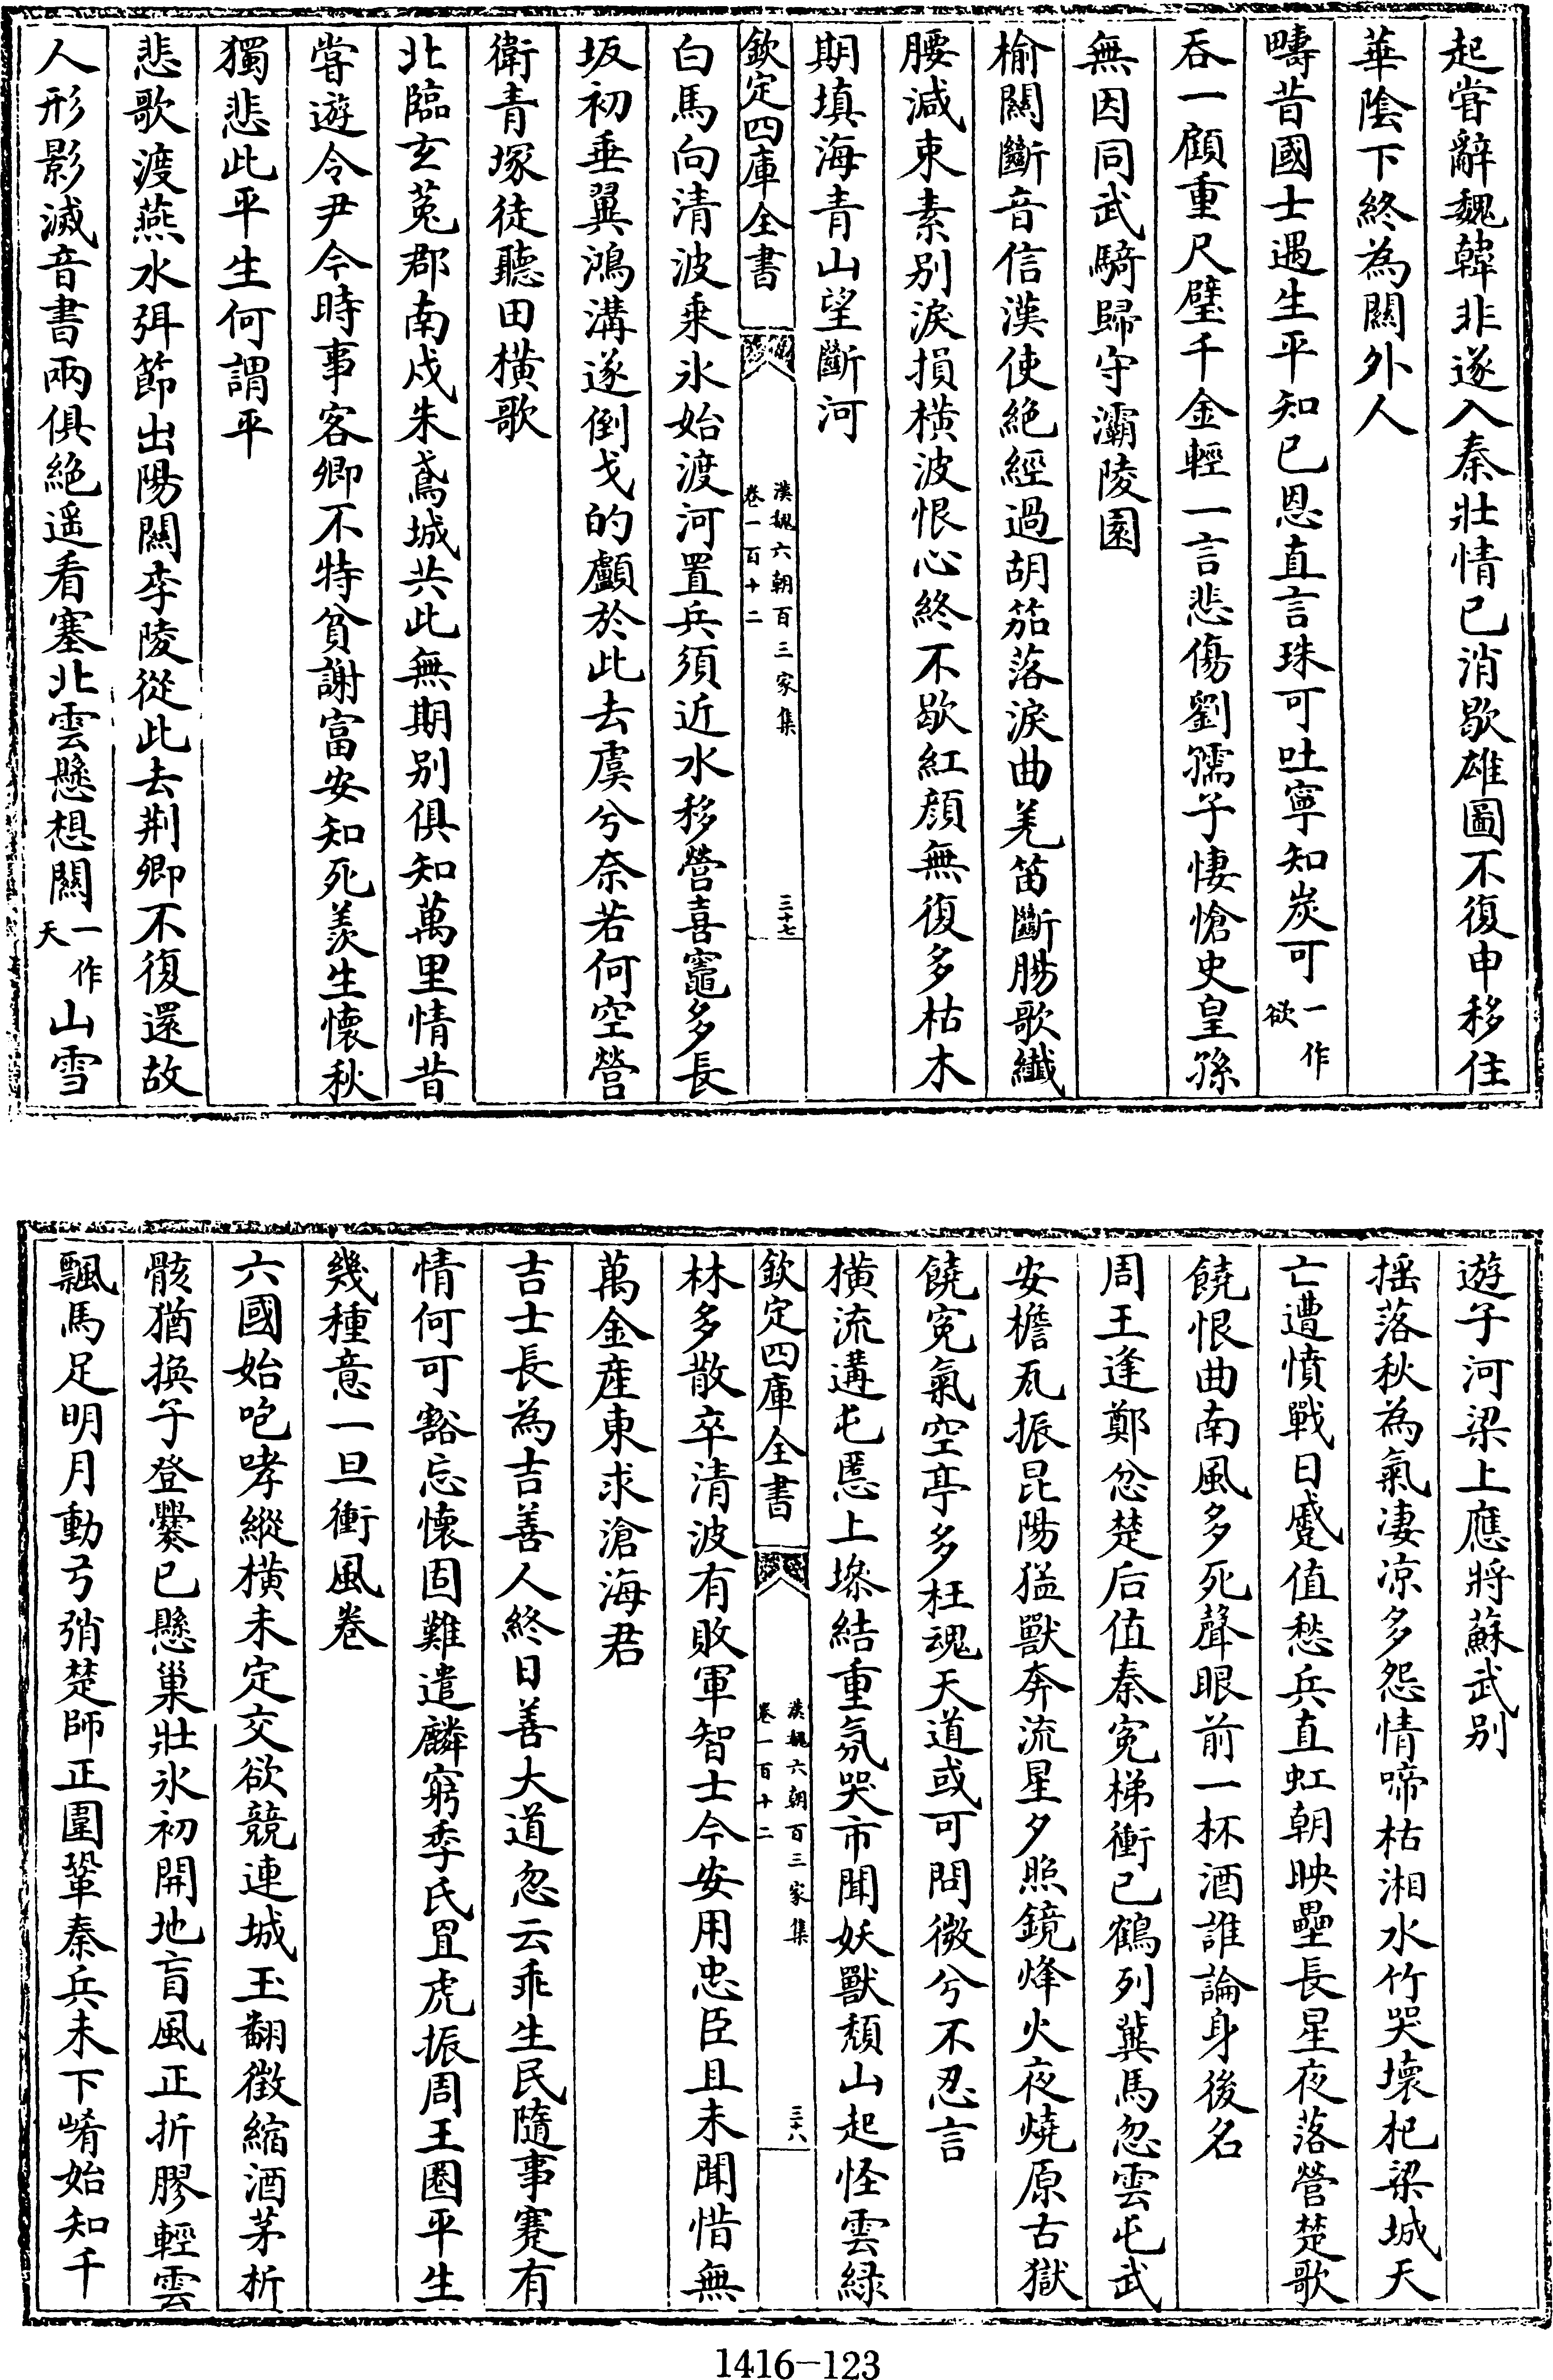 起嘗辭魏韓非遂入秦壯情已消歇雄圖不復申移住
華陰下終為關外人
疇昔國士遇生平知已恩直言珠可吐寧知炭可一作欲
吞一顧重尺璧千金輕一言悲傷劉孺子悽愴史皇孫
無因同武騎歸守灞陵園
榆關斷音信漢使絶經過胡笳落淚曲羌笛斷腸歌纎
腰減束素别淚損橫波恨心終不歇紅顔無復多枯木
期填海青山望斷河
欽定四庫全書
漢魏六朝百三家集
卷一百十二
三十七
白馬向清波乗氷始渡河置兵須近水移營喜竈多長
坂初垂翼鴻溝遂倒戈的顱於此去虞兮奈若何空營
衛青塚徒聽田横歌
北臨玄菟郡南戍朱鳶城共此無期别俱知萬里情昔
嘗遊令尹今時事客卿不特貧謝富安知死羨生懐秋
獨悲此平生何謂平
悲歌渡燕水弭節出陽關李陵從此去荆卿不復還故
人形影滅音書兩俱絶遥看塞北雲懸想關一作天山雪
遊子河梁上應將蘇武别
揺落秋為氣凄凉多怨情啼枯湘水竹哭壞杞梁城天
亡遭憤戰日蹙值愁兵直虹朝映壘長星夜落營楚歌
饒恨曲南風多死聲眼前一杯酒誰論身後名
周王逢鄭忿楚后值秦寃梯衝已鶴列冀馬忽雲屯武
安檐瓦振昆陽猛獸奔流星夕照鏡烽火夜燒原古獄
饒寃氣空亭多枉魂天道或可問微兮不忍言
橫流遘屯慝上墋結重氛哭市聞妖獸頽山起怪雲緑
欽定四庫全書
漢魏六朝百三家集
卷一百十二
三十八
林多散卒清波有敗軍智士今安用忠臣且未聞惜無
萬金産東求滄海君
吉士長為吉善人終日善大道忽云乖生民隨事蹇有
情何可豁忘懐固難遣麟窮季氏罝虎振周王圈平生
幾種意一旦衝風卷
六國始咆哮縱橫未定交欲競連城玉翻徵縮酒茅析
骸猶換子登爨已懸巢壯氷初開地盲風正折膠輕雲
飄馬足明月動弓弰楚師正圍鞏秦兵未下崤始知千
1416-123